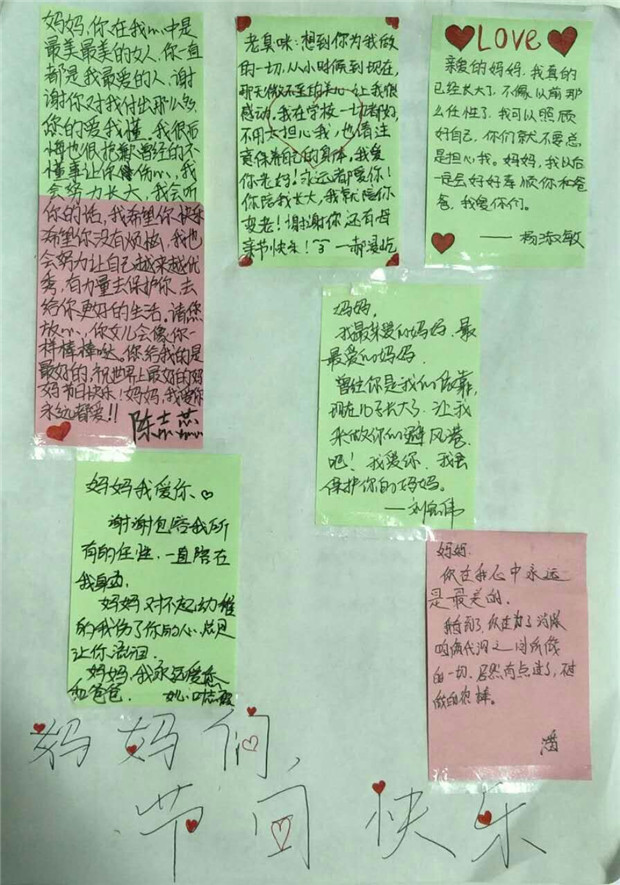 妈妈，你在我心中是
最美最美的女人，你一直
都是我最爱的人，谢
谢你对我付出那么多
您的爱我懂，我很后
悔也很抱歉曾经的不
懂事让你伤心，我
会努力长大，我会听
你的话，我希望你快乐
希望你没有烦恼，我也
会努力让自己越来越优
秀，有力量去保护你，去
给你更好的生活，请您
放心，你女儿会像你一
样棒棒哒，你给我的是
最好的，祝世界上最好的妈
妈节日快乐！妈妈，我爱你
永远都爱！！
陈志燕
老真咪：想到你为我做
的一切，从小时候到现在，
那无微不至的关心让我很
感动，我在学校一切都好，
不用太担心我，也请注
意保养自己的身体，我爱
你老妈！永远都爱你！
你陪我长大，我就陪你
变老！谢谢你还有母
亲节快乐！
LOVE
亲爱的妈妈，我真的
已经长大了，不像从前那
么任性了，我可以照顾
好自己，你们就不要总
是担心我。妈妈，我以后
一定会好好孝顺你和爸
爸，我爱你们。
——杨淑敏
妈妈，
我最亲爱的妈妈，最
最爱的妈妈，
曾经你是我们的依靠，
现在儿子长大了，让我
来做你们的避风港
吧！我爱你，我会
保护你的妈妈。
妈妈我爱你
谢谢包容我所
有的任性，一直陪在
我身边，
妈妈对不起幼稚
的我伤了你的心，总是
让你流泪，
妈妈，我永远爱您
和爸爸。
妈妈：
你在我心中永远
是最美的，
的一切，居然有点过了，不过
做的很棒。
潘
妈妈们，
节日快乐